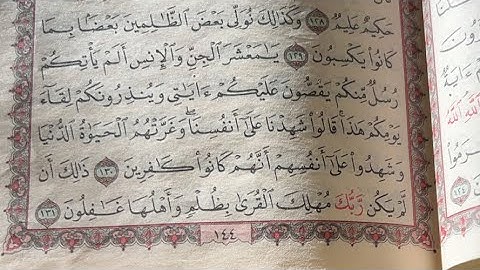 حَكِيمٌ عَلِيمٌ ١٢٨ وَكَذَٰلِكَ نُوَلِّي بَعْضَ ٱلظَّٰلِمِينَ بَعْضَۢا بِمَا
كَانُوا۟ يَكْسِبُونَ ١٢٩ يَٰمَعْشَرَ ٱلْجِنِّ وَٱلْإِنسِ أَلَمْ يَأْتِكُمْ
رُسُلٌ مِّنكُمْ يَقُصُّونَ عَلَيْكُمْ ءَايَٰتِي وَيُنذِرُونَكُمْ لِقَآءَ
يَوْمِكُمْ هَٰذَا ۚ قَالُوا۟ شَهِدْنَا عَلَىٰٓ أَنفُسِنَا ۖ وَغَرَّتْهُمُ ٱلْحَيَوٰةُ ٱلدُّنْيَا
وَشَهِدُوا۟ عَلَىٰٓ أَنفُسِهِمْ أَنَّهُمْ كَانُوا۟ كَٰفِرِينَ ١٣٠ ذَٰلِكَ أَن
لَّمْ يَكُن رَّبُّكَ مُهْلِكَ ٱلْقُرَىٰ بِظُلْمٍ وَأَهْلُهَا غَٰفِلُونَ ١٣١
١٤٤